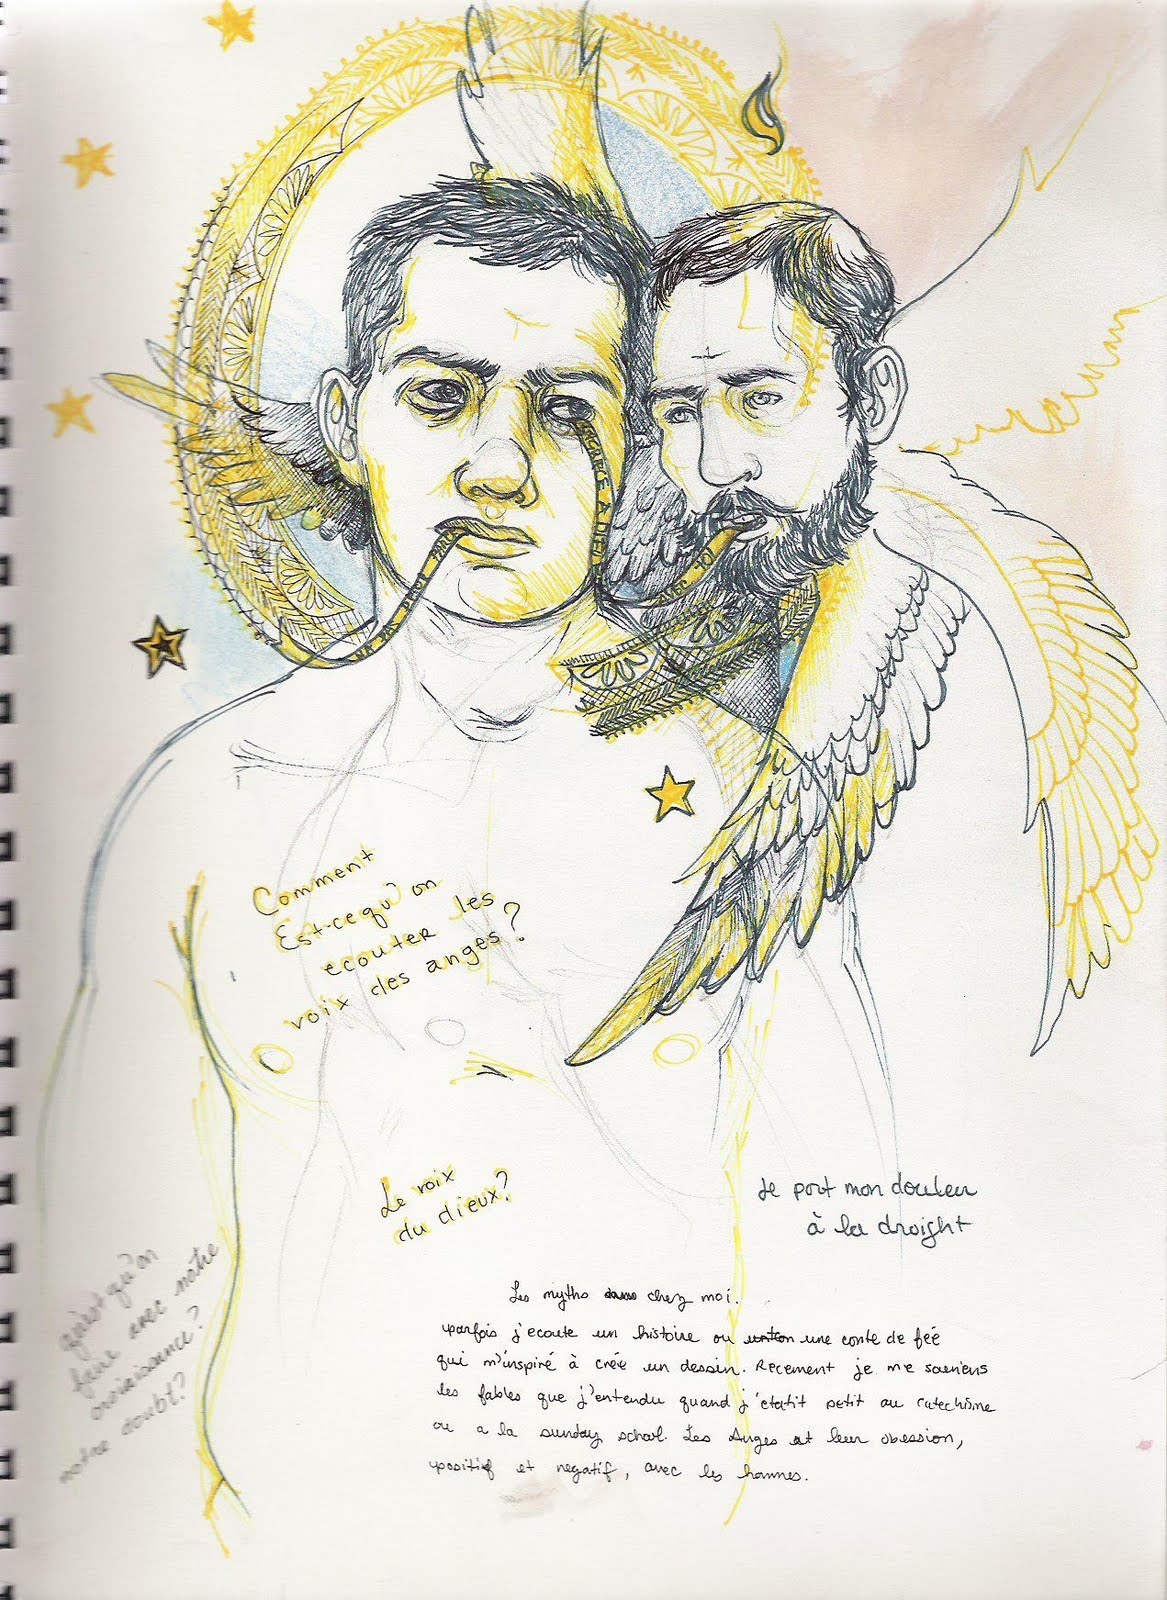 GRACE A DIEU
Comment
Est-ce qu'on
ecouter les
voix des anges?
Le voix
du dieux?
Je port mon douleur
à la droight
qu'est qu'on
faire avec notre
notre doubt?
Les myths chez moi.
parfois j'ecoute un histoire ou une conte de feé
qui m'inspiré à crée un dessin. Recement je me souviens
les fables que j'entendu quand j'etatit petit au catechisme
ou a la sunday school. Les Anges et leur obession,
positif et negatif, avec les hommes.